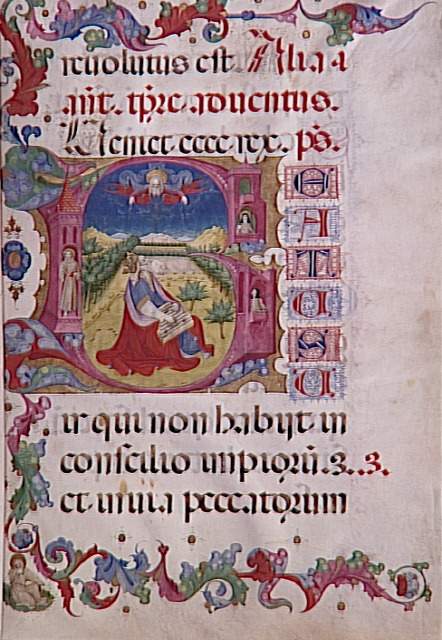 reuolutus est. Alia a
ñt. tp̄re aduentus.
Veniet ecce rex. p̄s.
B
E
A
T
U
S
U
ir qui non habijt in
conscilio impiorū.
et in uia peccatorum